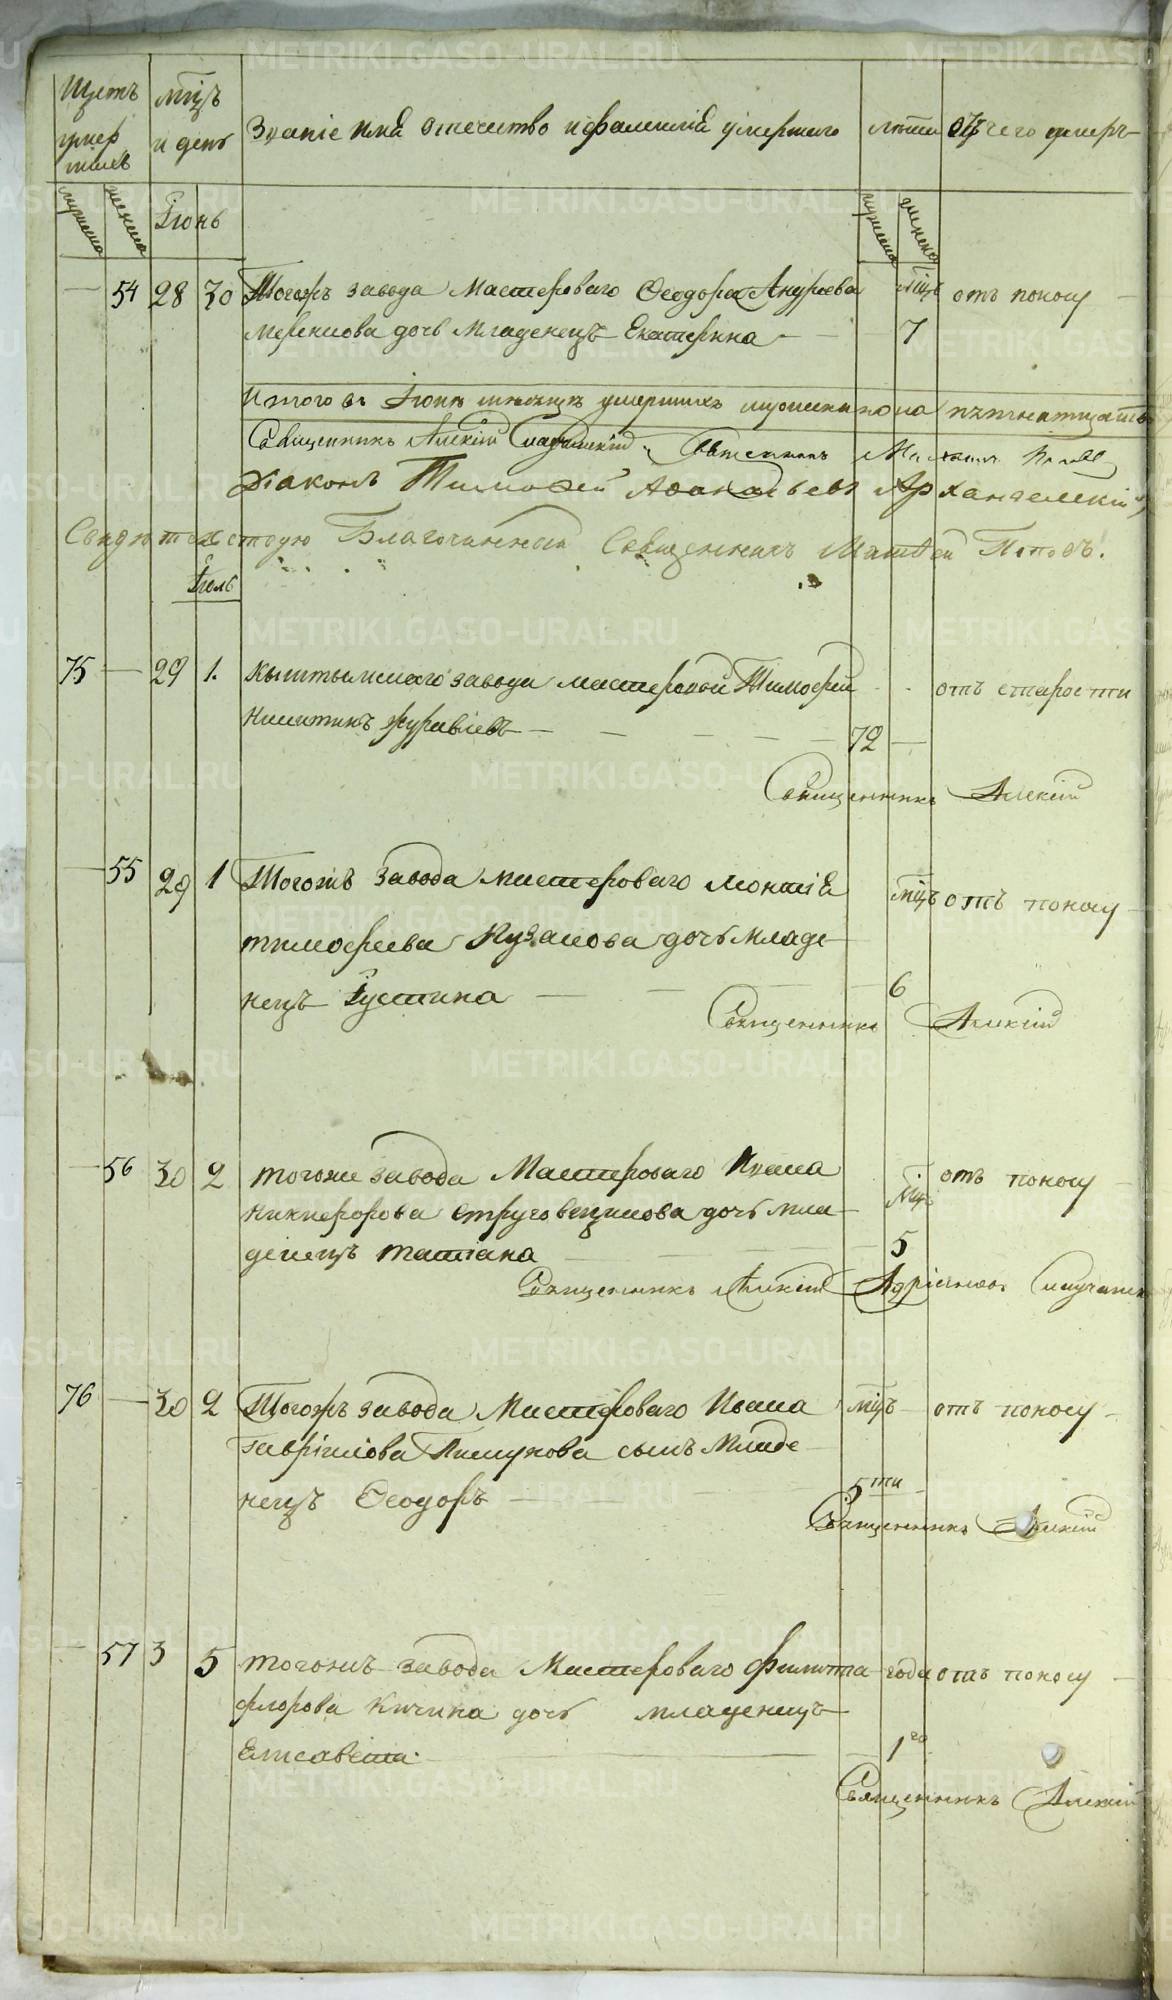 Щетъ умершихъ
мцъ и день
Званіе имѧ отечество и фамиліѧ умершаго
лѣта
отъ чего умеръ
мужеска
женска
Іюнь
мужеска
женска
54 28 30 Тогожъ завода Мастероваго Ѳеодора Андреева мцъ отъ поносу
дочь младенецъ Екатерина 7
Итого въ Іюнѣ мѣсяцѣ умершихъ мужеска пола пѣтнатцать
Священникъ Алексій Священникъ
Діаконъ Тимоѳей Аѳанасьевъ Архангелскій
Свидѣтелствую Благочинный Священникъ Матѳей Поповъ.
Іюль
75 29 1. Кыштымскаго завода мастеровой Тимофей отъ старости
Никитинъ Журавлевъ 72
Священникъ Алексій
55 29 1 Тогожъ завода мастероваго мцъ отъ поносу
тимофеева дочь младе
нецъ Іустина 6
Священникъ Алексій
56 30 2 тогоже завода Мастероваго Ивана мцъ отъ поносу
никифорова Струговщикова дочь мла
денецъ татіана 5
Священникъ Алексій Адріановъ
76 30 2 Тогожъ завода Мастероваго Ивана мцъ отъ поносу
гавріилова Пишукова сынъ Младе
нецъ Ѳеодоръ 5ти
Священникъ Алексій
57 3 5 тогожъ завода Мастероваго филипа года отъ поносу
флорова Кичина дочь младенецъ
Елисавета. 1го
Священникъ Алексій
METRIKI.GASO-URAL.RU